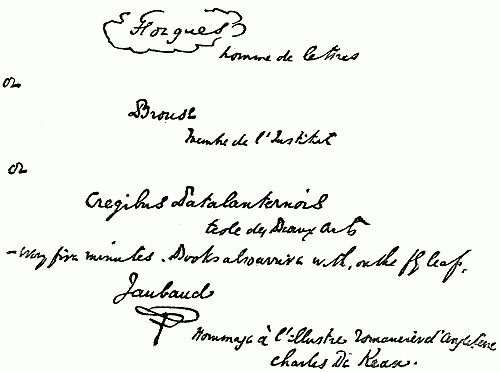 Forgues
homme de lettres
or
Brouse
Membre de l'Institut
or
Cregibus Patalanternois
Ecole des Beaux Arts
—every five minutes. Books also arrive with, on the fly leaf,
Jaubaud
Hommage à l'illustre Romancier d'Angleterre
Charles De Kean.